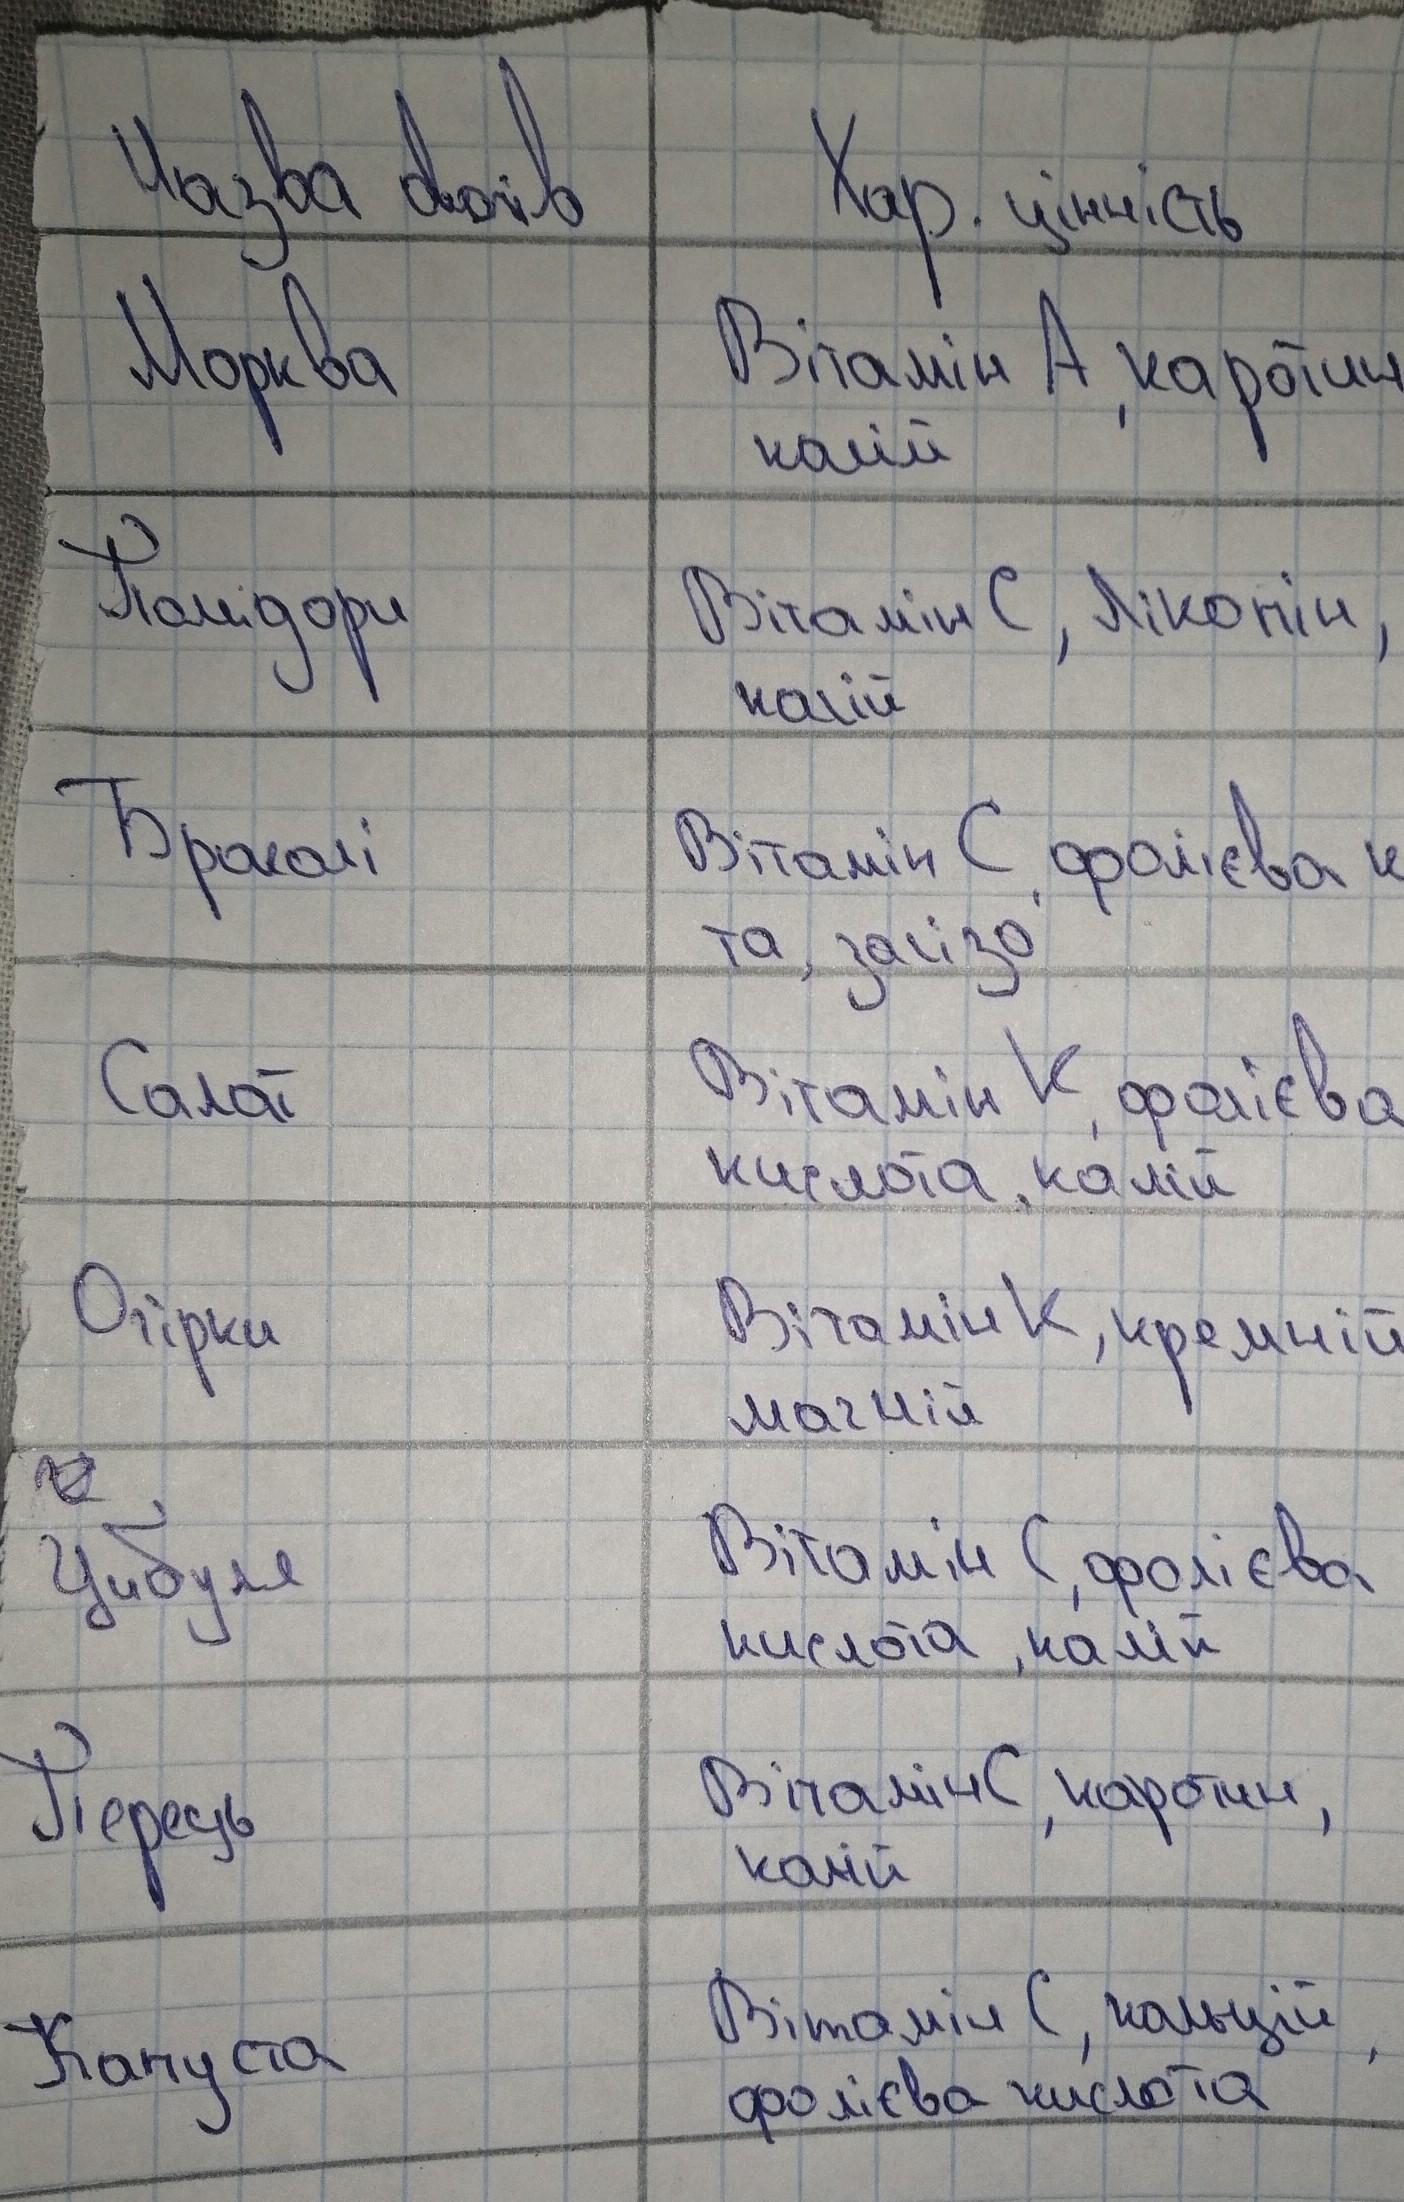 Назва овочів
Хар. цінність
Морква
Вітамін А, каротин
калій
Помідори
Вітамін С, Лікопін,
калій
Броколі
Вітамін С, фолієва к
та, залізо
Салат
Вітамін К, фолієва
кислота, калій
Огірки
Вітамін К, кремній
магній
Цибуля
Вітамін С, фолієва
кислота, калій
Перець
Вітамін С, каротин,
калій
Капуста
Вітамін С, кальцій,
фолієва кислота